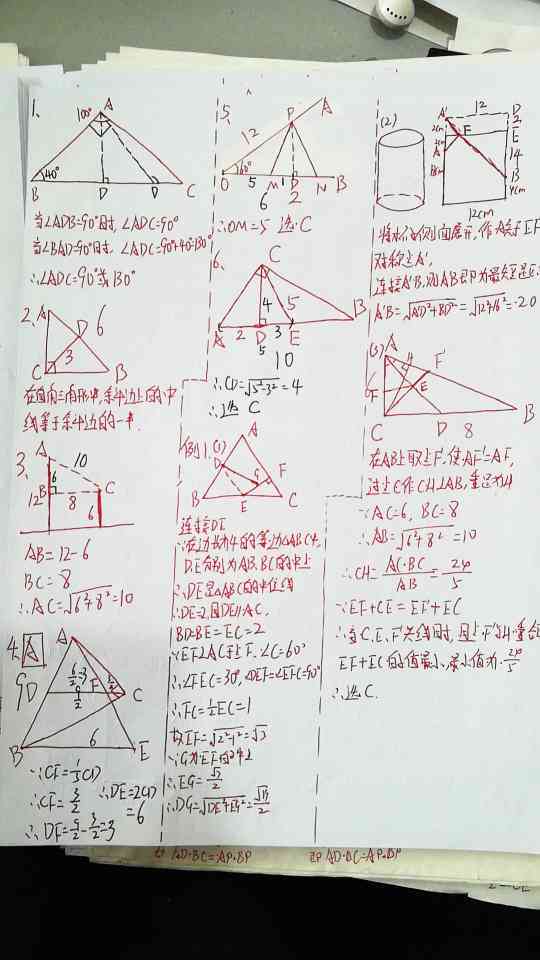 1、
100° A
40°
B D D C
当∠ADB=90°时, ∠ADC=90°
当∠BAD=90°时, ∠ADC=90°+40°=130°
∴∠ADC=90°或130°
2、A 6
D
3
C B
在直角三角形中,斜边上的中
线等于斜边的一半.
3、
A
10
6
12 B C
8
6
AB=12-6
BC=8
∴AC=√6²+8²=10
4、A
A
9
D F C
B 6 E
∵CF=1/3CD
∴CF=3/2 ∴DE=2CD
=6
∴DF=9/2-3/2=3
5、
P A
12
60°
O 5 M 1 D N B
6 2
∴OM=5 选C
6、
C
4 5
A 2 D 3 E B
5 10
∴CD=√5²-3²=4
∴选 C
例1.(1)
A
D G F
B E C
连接DE
∵在边长为4的等边△ABC中,
D.E分别为AB.BC的中点
∴DE是△ABC的中位线
∴DE=2,且DE∥AC,
BD=BE=EC=2
∵EF⊥AC于F, ∠C=60°
∴∠FEC=30°, ∠DEF=∠EFC=90°
∴FC=1/2EC=1
故EF=√2²-1²=√3
∵G为EF的中点
∴EG=√3/2
∴DG=√DE²+EG²=√19/2
(2)
A' 12 D
2cm 2
E
A
14
B
4cm
12cm
对称点A',
A'B=√A'D²+BD²=√12²+16²=20
(3) A
F'
F E
C D 8 B
在AB上取点F',使AF'=AF,
过点C作CH⊥AB,垂足为H
∵AC=6, BC=8
∴AB=√6²+8²=10
∴CH=AC·BC/AB=24/5
∵EF+CE=EF'+EC
∴当C.E.F'共线时,且点F'与H重合
EF+EC的值最小,最小值为24/5
∴选C.
AD·BC=AP·BP
即AD·BC=AP·BP